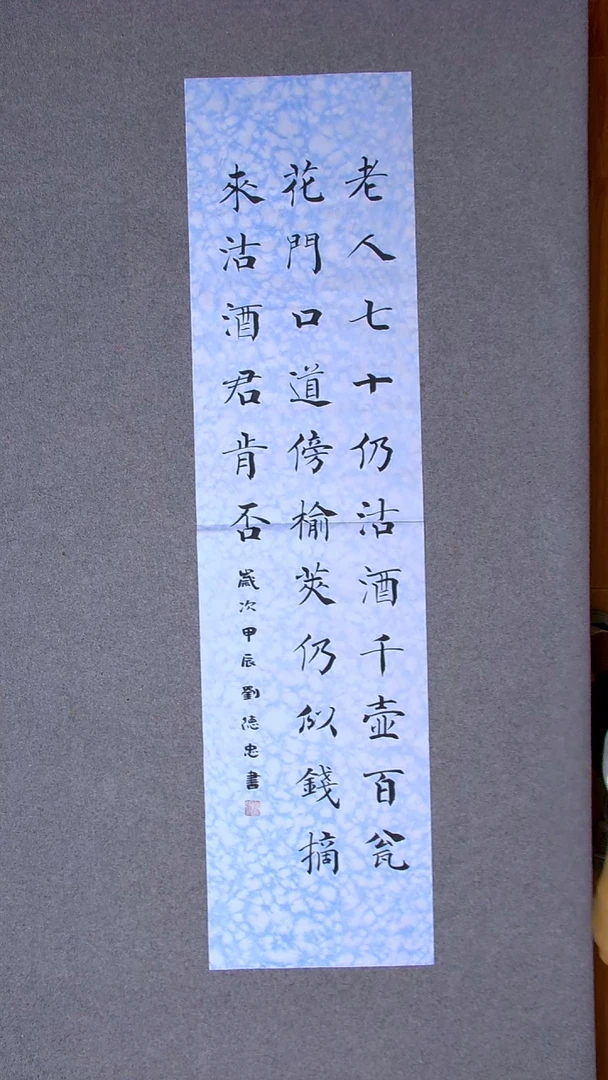 老人七十仍沽酒千壺百瓮
花門口道傍榆莢仍似錢摘
來沽酒君肯否
歲次甲辰劉德忠書